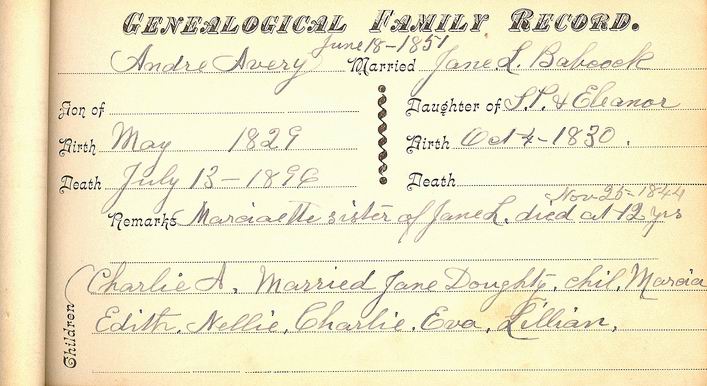 GENEALOGICAL FAMILY RECORD.
June 18-1851
Andre Avery Married Jane L. Babcock
Son of Daughter of S.P. & Eleanor
Birth May 1829 Birth Oct 4-1830.
Death July 13-1896 Death
Nov-25-1844
Remarks Marciaette sister of Jane L. died at 12 yrs
Children
Charlie A. Married Jane Doughty. chil. Marcia
Edith. Nellie. Charlie. Eva. Lillian.